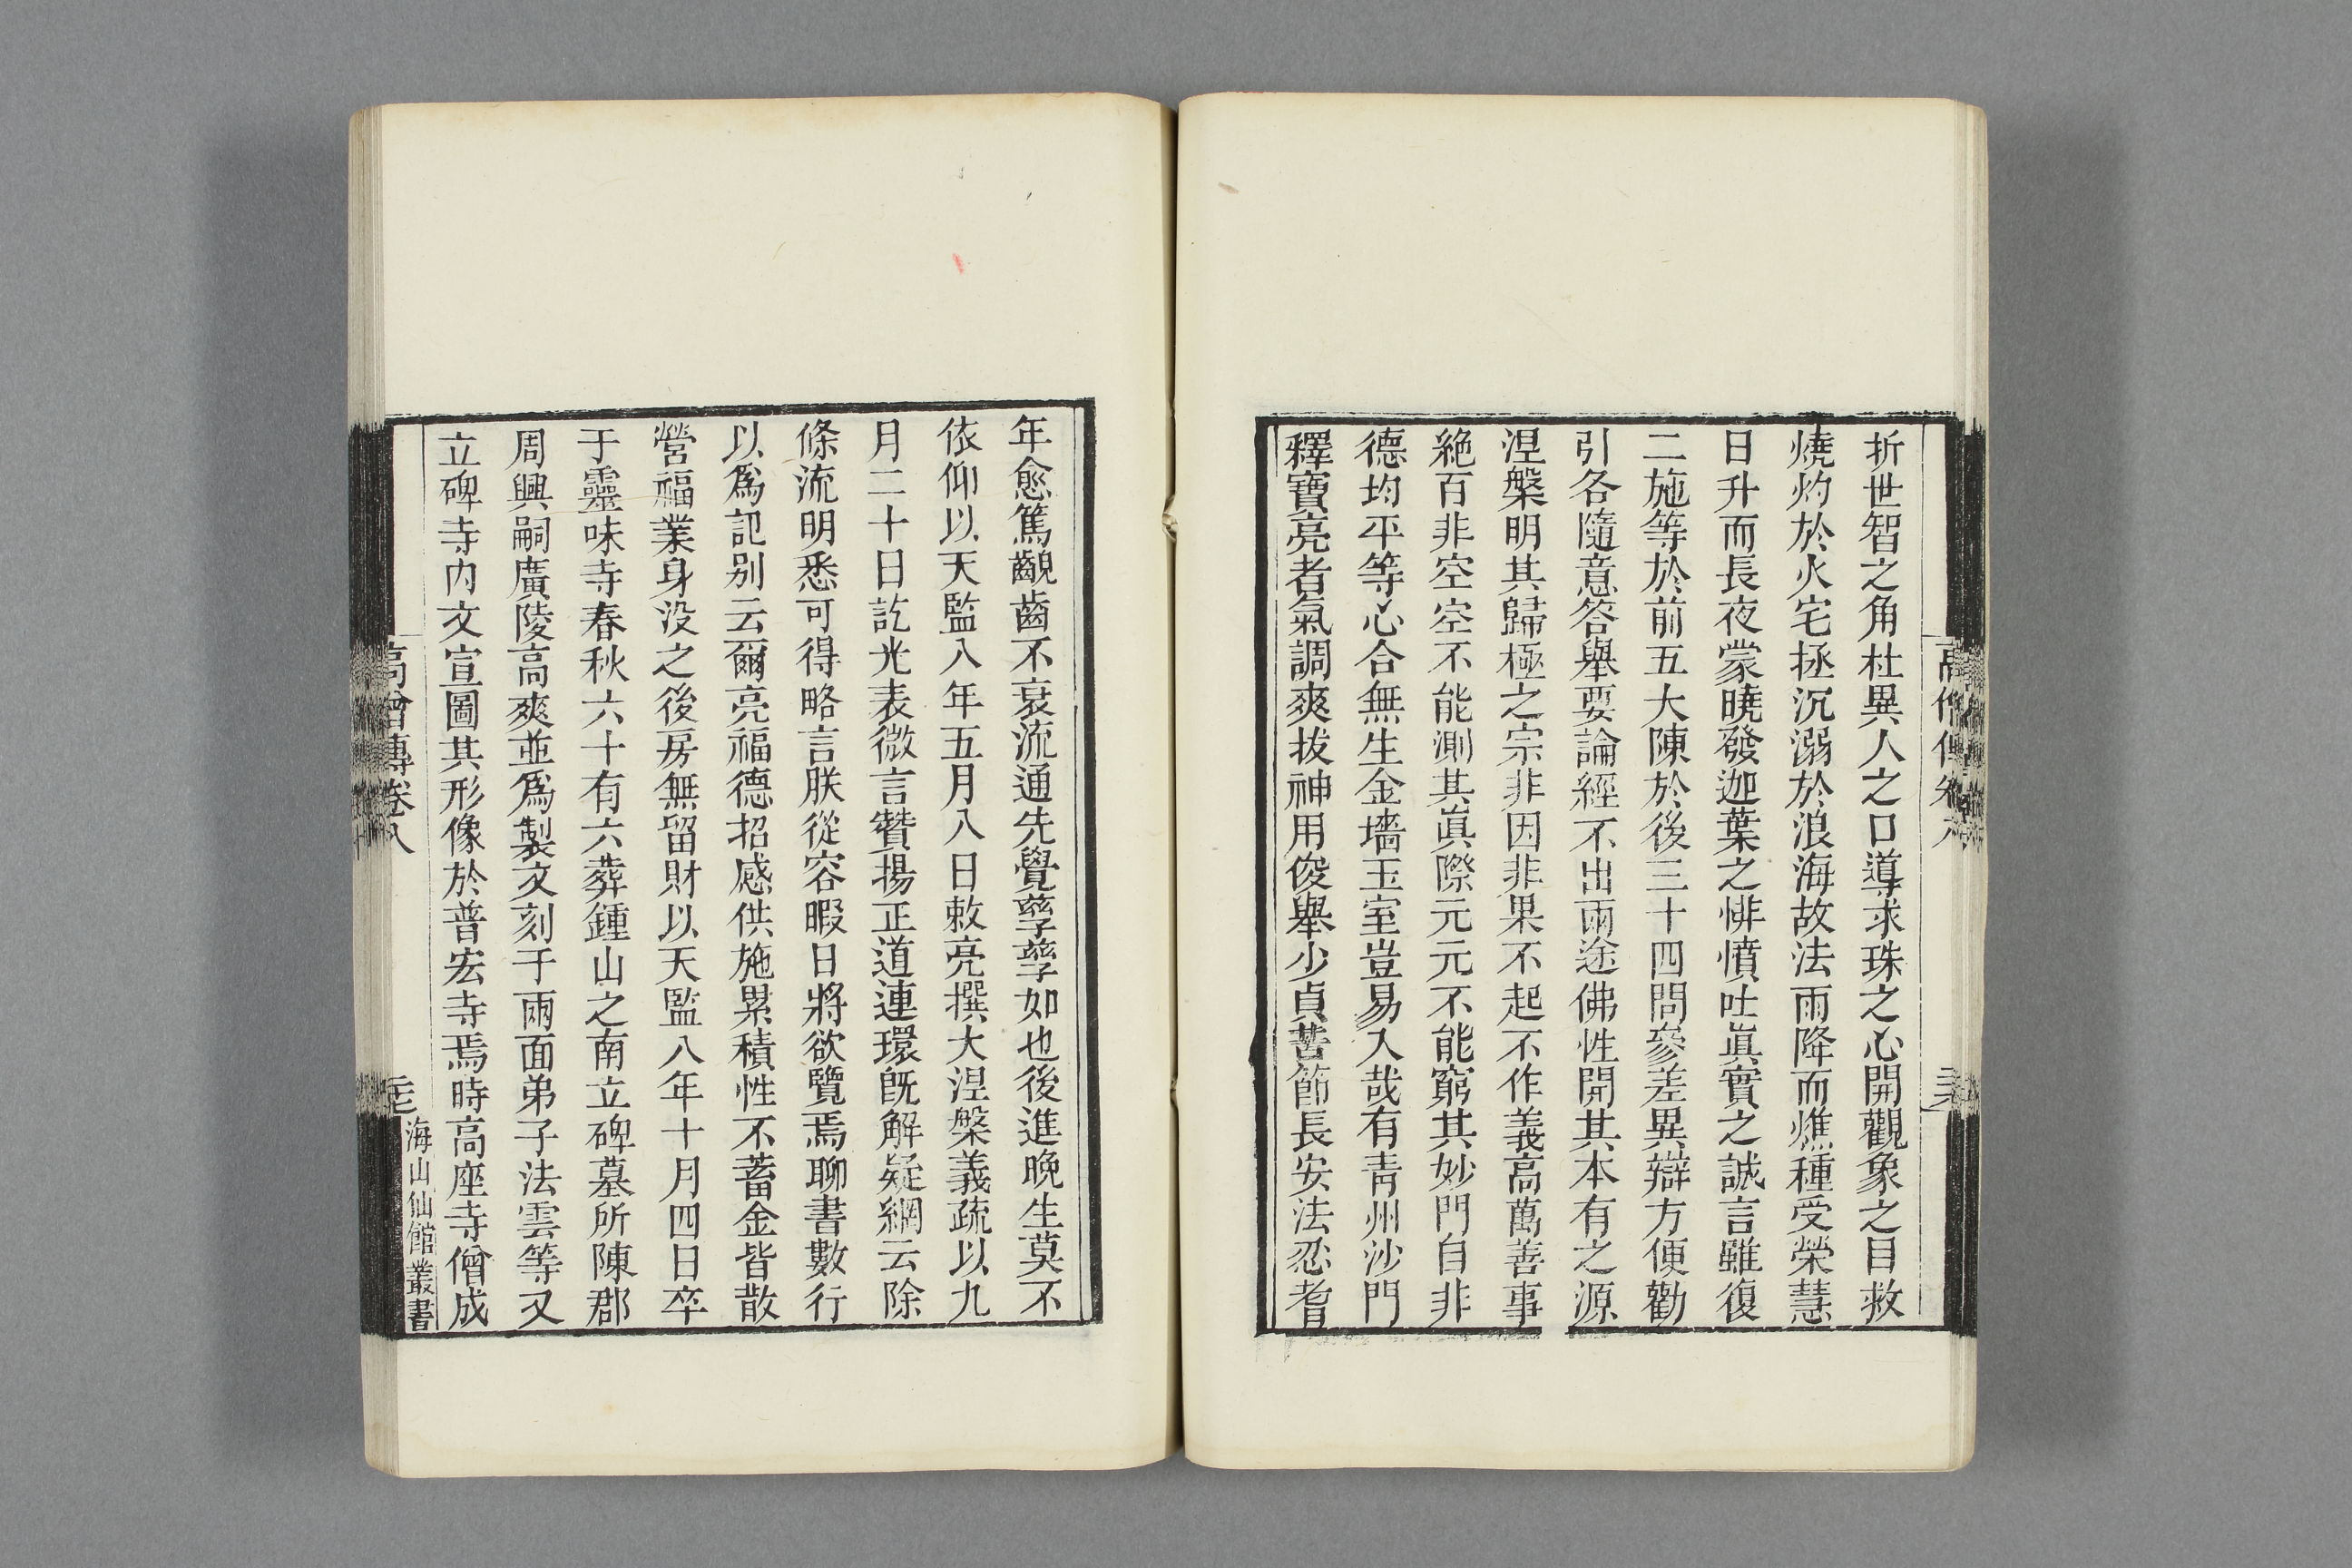 折世智之角杜異人之口導求珠之心開觀象之目救
燒灼於火宅拯沉溺於浪海故法雨降而燋種受榮慧
日升而長夜蒙曉發迦葉之悱憤吐眞實之誠言雖復
二施等於前五大陳於後三十四問參差異辯方便勸
引各隨意答舉要論經不出兩途佛性開其本有之源
涅槃明其歸極之宗非因非果不起不作義高萬善事
絶百非空空不能測其眞際元元不能窮其妙門自非
德均平等心合無生金墻玉室豈易入哉有青州沙門
釋寶亮者氣調爽拔神用俊舉少貞苦節長安法忍耆
年愈篤齯齒不衰流通先覺孳孳如也後進晚生莫不
依仰以天監八年五月八日敕亮撰大涅槃義疏以九
月二十日訖光表微言贊揚正道連環旣解疑網云除
條流明悉可得略言朕從容暇日將欲覽焉聊書數行
以爲記别云爾亮福德招感供施累積性不蓄金皆散
營福業身没之後房無留財以天監八年十月四日卒
于靈味寺春秋六十有六葬鍾山之南立碑墓所陳郡
周興嗣廣陵高爽並爲製文刻于兩面弟子法雲等又
立碑寺内文宣圖其形像於普宏寺焉時高座寺僧成
高僧傳卷八
海山仙館叢書